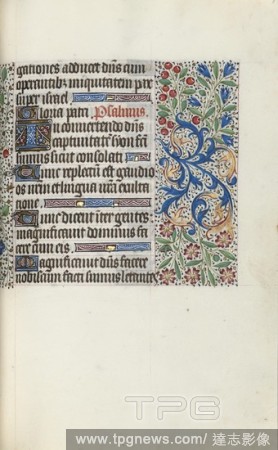 gationes adducet dn̄s cum
operantibz iniquitatem pax
super israel
Gloria patri Psalmus.
In convertendo dn̄s
captiuitatē syon fa
cti sumus sicut consolati
Tunc repletū est gaudio
os nr̄m et lingua nr̄a exulta
tione
Tunc dicent inter gentes
magnificauit dominus fa
cere cum eis
Magnificauit dn̄s facere
nobiscum facti sumus letantes
TPG
www.tpgnews.com/達志影像